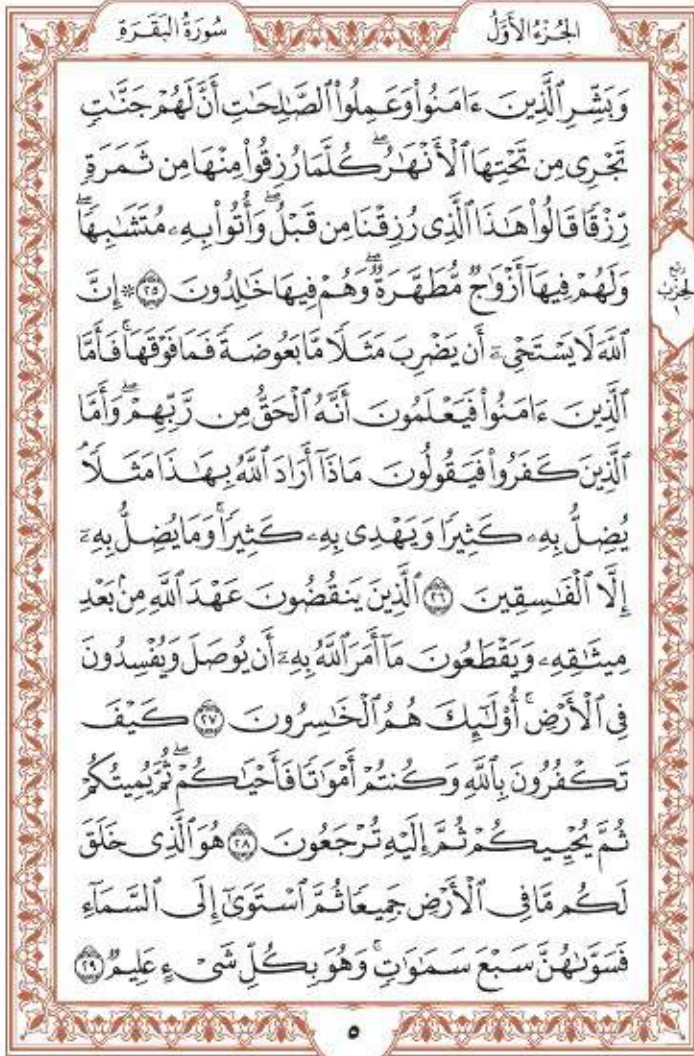 الجُزْءُ الأَوَّلُ
سُورَةُ البَقَرَةِ
وَبَشِّرِ ٱلَّذِينَ ءَامَنُواْ وَعَمِلُواْ ٱلصَّـٰلِحَـٰتِ أَنَّ لَهُمْ جَنَّـٰتٍ
تَجْرِى مِن تَحْتِهَا ٱلْأَنْهَـٰرُ ۖ كُلَّمَا رُزِقُواْ مِنْهَا مِن ثَمَرَةٍ
رِّزْقًا قَالُواْ هَـٰذَا ٱلَّذِى رُزِقْنَا مِن قَبْلُ ۖ وَأُتُواْ بِهِۦ مُتَشَـٰبِهًا ۖ
وَلَهُمْ فِيهَآ أَزْوَٰجٌ مُّطَهَّرَةٌ ۖ وَهُمْ فِيهَا خَـٰلِدُونَ ٢٥ ۞ إِنَّ
ٱللَّهَ لَا يَسْتَحْىِۦٓ أَن يَضْرِبَ مَثَلًا مَّا بَعُوضَةً فَمَا فَوْقَهَا ۚ فَأَمَّا
ٱلَّذِينَ ءَامَنُواْ فَيَعْلَمُونَ أَنَّهُ ٱلْحَقُّ مِن رَّبِّهِمْ ۖ وَأَمَّا
ٱلَّذِينَ كَفَرُواْ فَيَقُولُونَ مَاذَآ أَرَادَ ٱللَّهُ بِهَـٰذَا مَثَلًا ۘ
يُضِلُّ بِهِۦ كَثِيرًا وَيَهْدِى بِهِۦ كَثِيرًا ۚ وَمَا يُضِلُّ بِهِۦٓ
إِلَّا ٱلْفَـٰسِقِينَ ٢٦ ٱلَّذِينَ يَنقُضُونَ عَهْدَ ٱللَّهِ مِنۢ بَعْدِ
مِيثَـٰقِهِۦ وَيَقْطَعُونَ مَآ أَمَرَ ٱللَّهُ بِهِۦٓ أَن يُوصَلَ وَيُفْسِدُونَ
فِى ٱلْأَرْضِ ۚ أُوْلَـٰٓئِكَ هُمُ ٱلْخَـٰسِرُونَ ٢٧ كَيْفَ
تَكْفُرُونَ بِٱللَّهِ وَكُنتُمْ أَمْوَٰتًا فَأَحْيَـٰكُمْ ۖ ثُمَّ يُمِيتُكُمْ
ثُمَّ يُحْيِيكُمْ ثُمَّ إِلَيْهِ تُرْجَعُونَ ٢٨ هُوَ ٱلَّذِى خَلَقَ
لَكُم مَّا فِى ٱلْأَرْضِ جَمِيعًا ثُمَّ ٱسْتَوَىٰٓ إِلَى ٱلسَّمَآءِ
فَسَوَّىٰهُنَّ سَبْعَ سَمَـٰوَٰتٍ ۚ وَهُوَ بِكُلِّ شَىْءٍ عَلِيمٌ ٢٩
ربع
الحزب
١
٥